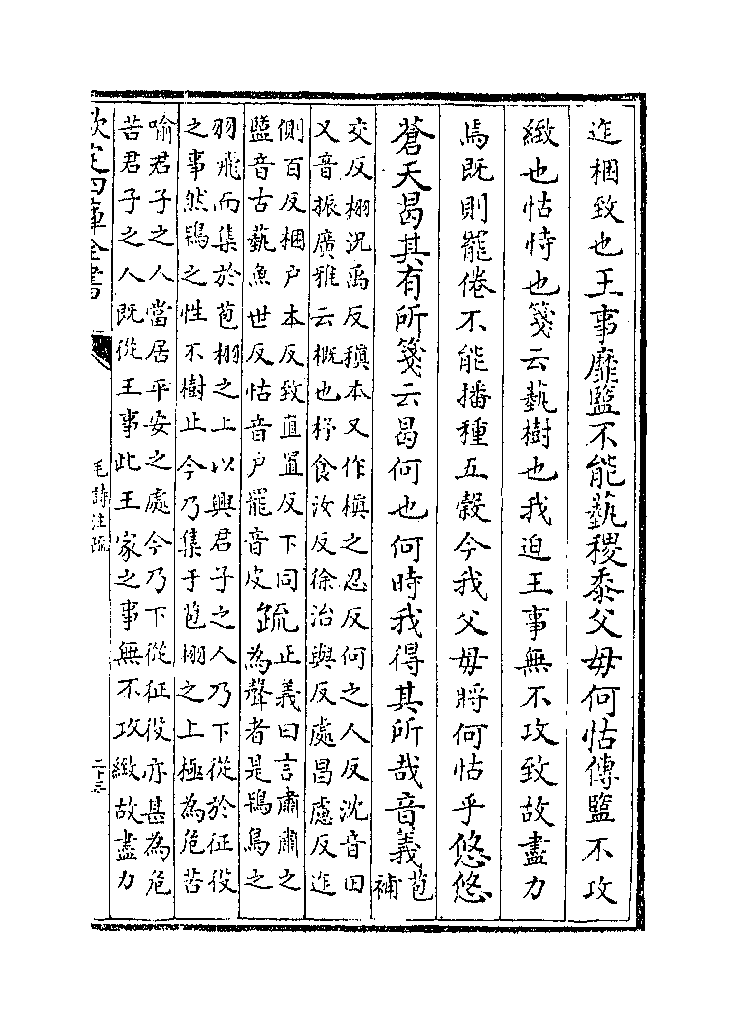 迮梱致也王事靡盬不能蓺稷黍父母何怙傳盬不攻
緻也怙恃也箋云蓺樹也我迫王事無不攻致故盡力
焉既則罷倦不能播種五穀今我父母將何怙乎悠悠
蒼天曷其有所箋云曷何也何時我得其所哉音義苞補
交反栩況禹反稹本又作槇之忍反何之人反沈音田
又音振廣雅云概也杼食汝反徐治與反處昌慮反迮
側百反梱户本反致直置反下同
盬音古蓺魚世反怙音户罷音皮
疏正義曰言肅肅之
為聲者是鴇鳥之
羽飛而集於苞栩之上以興君子之人乃下從於征役
之事然鴇之性不樹止今乃集于苞栩之上極為危苦
喻君子之人當居平安之處今乃下從征役亦甚為危
苦君子之人既從王事此王家之事無不攻緻故盡力
欽定四庫全書
毛詩注疏
二十三